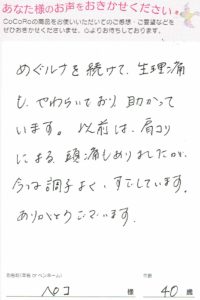 あなた様のお声をおきかせください
CoCoRoの商品をお使いいただいてのご感想・ご要望などを
ぜひおきかせくださいませ。心よりお待ちしております。
めぐルナを続けて、生理痛
も、やわらいでおり、助かって
います。以前は、肩コリ
による、頭痛もありましたが、
今は調子よく、すごしています。
ありがとうございます。
ペコ 様 40 歳